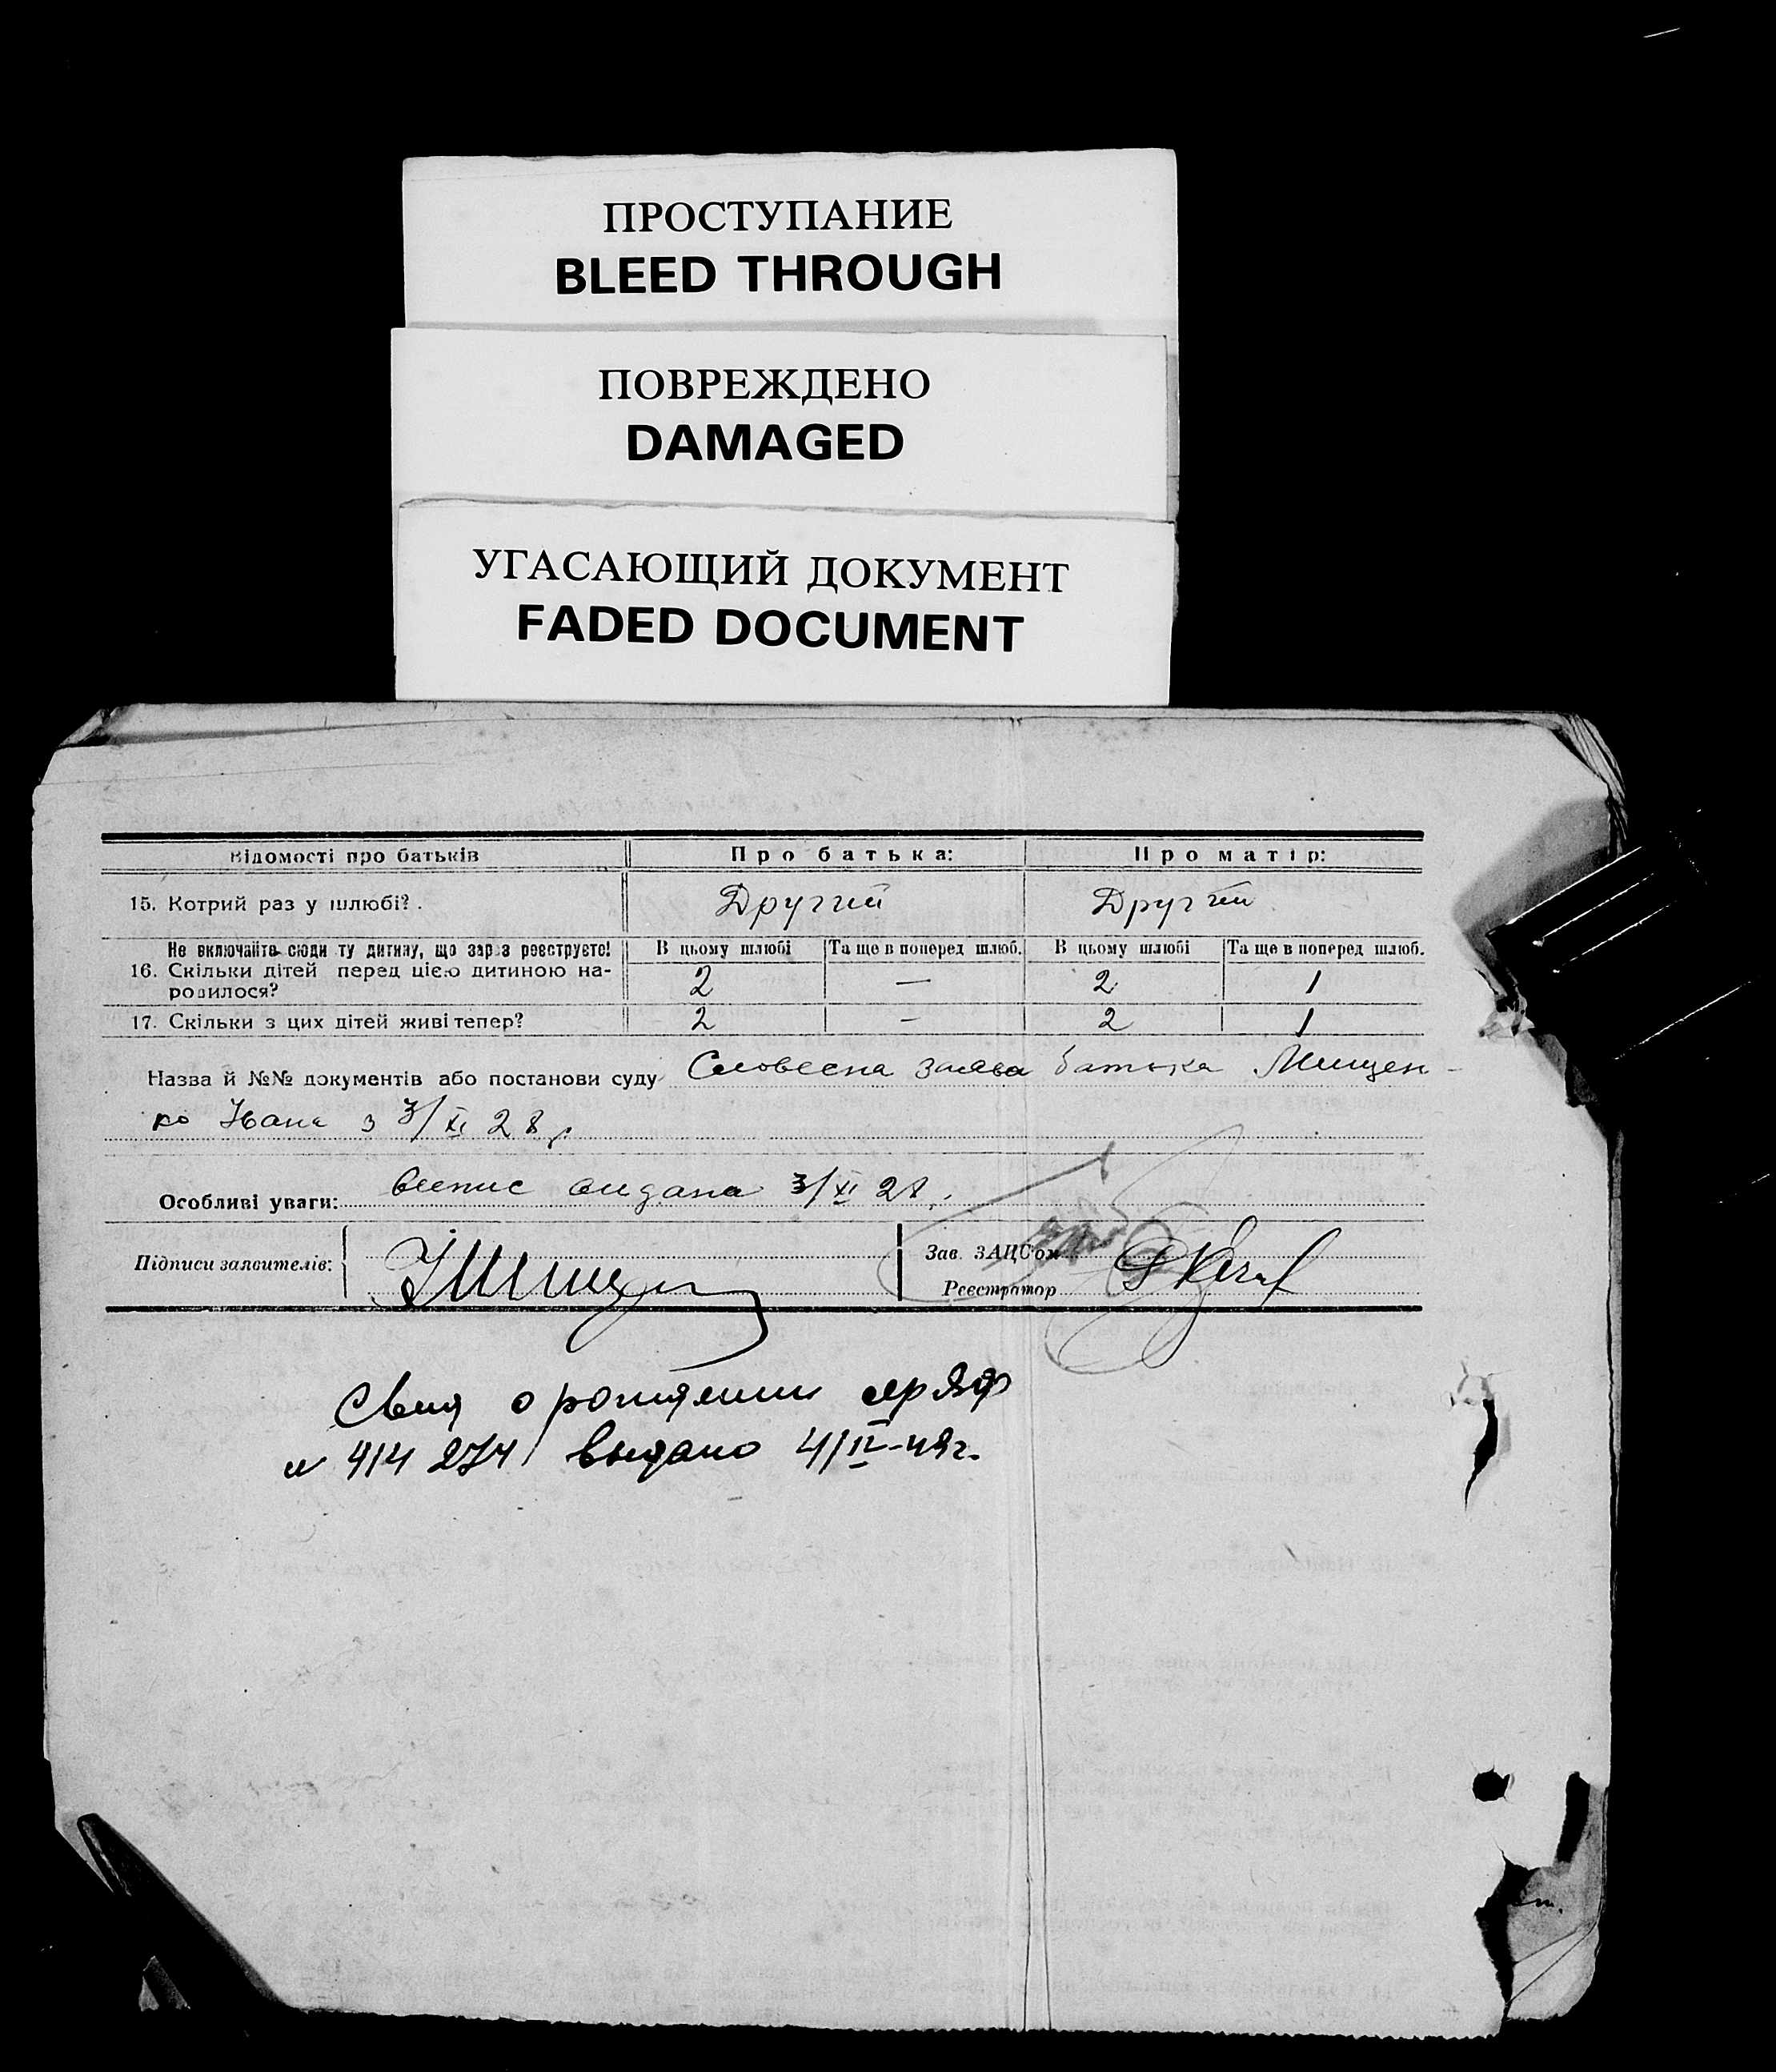 ПРОСТУПАНИЕ
BLEED THROUGH
ПОВРЕЖДЕНО
DAMAGED
УГАСАЮЩИЙ ДОКУМЕНТ
FADED DOCUMENT
Відомості про батьків Про батька: Про матір:
15. Котрий раз у шлюбі? . Другий Другий
Не включайте сюди ту дитину, що зараз реєструєте! В цьому шлюбі Та ще в поперед шлюб. В цьому шлюбі Та ще в поперед шлюб.
16. Скільки дітей перед цією дитиною на- 2 — 2 1
родилося?
17. Скільки з цих дітей живі тепер? 2 – 2 1
Назва й №№ документів або постанови суду Словесна заява батька Мищен-
ко Івана з 3/XI 28 р
Особливі уваги: випис видана 3/XI 28.
Підписи заявителів: Зав. ЗАЦСом
Реєстратор
о рождении
№ 414 274 выдано 4/IV-49г.